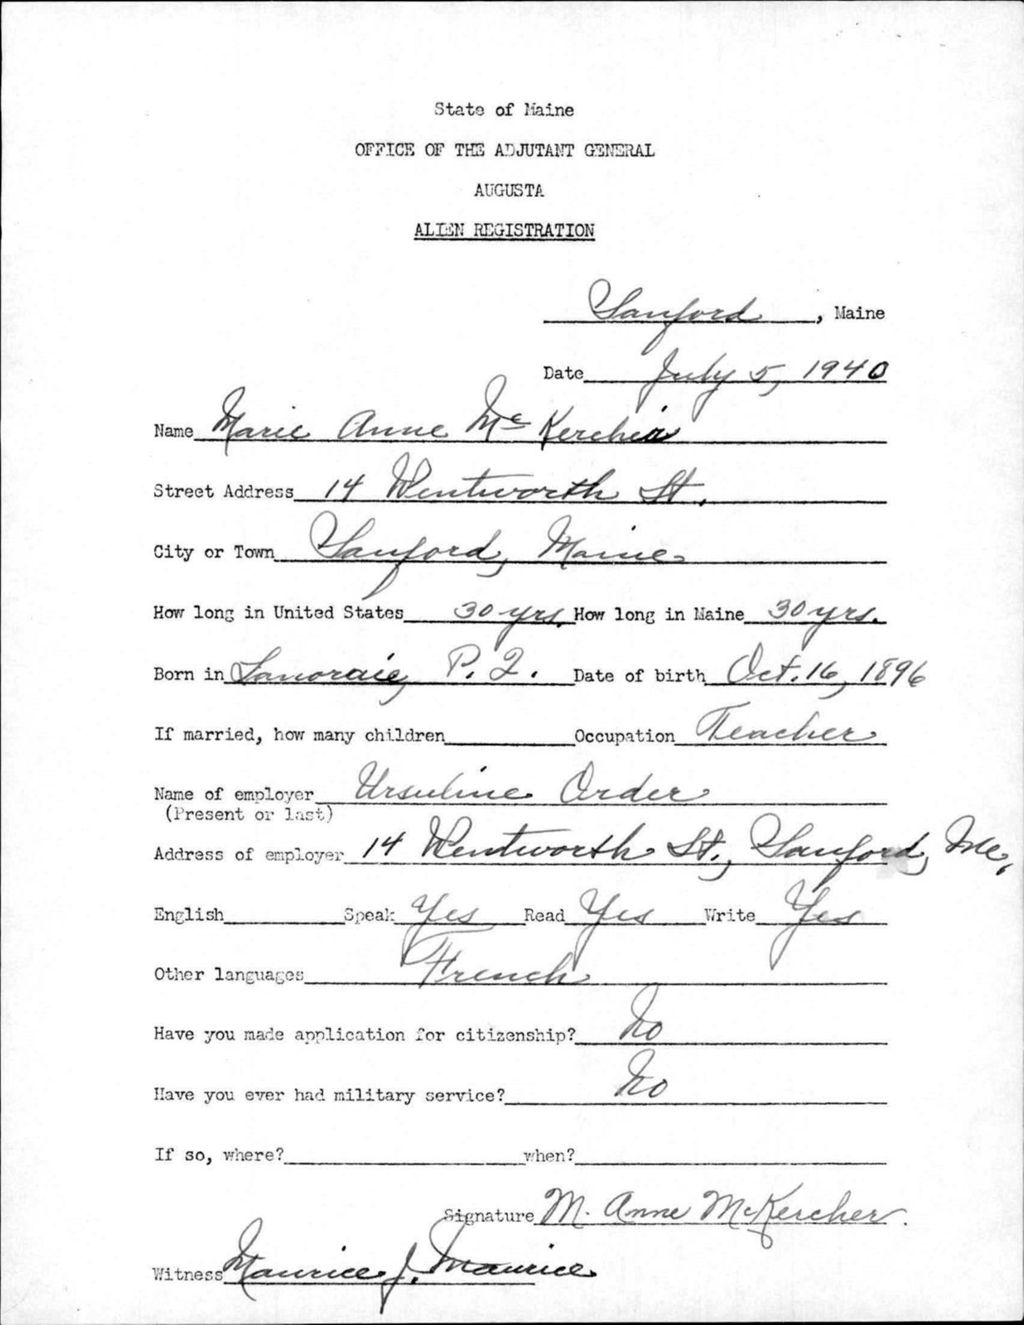 State of Maine
OFFICE OF THE ADJUTANT GENERAL
AUGUSTA
ALIEN REGISTRATION
Sanford, Maine
Date July 5, 1940
Name Marie Anne Mc Kercher
Street Address 14 Wentworth St.
City or Town Sanford, Maine
How long in United States 30 yrs. How long in Maine 30 yrs.
Born in Lanoraie, P. Q. Date of birth Oct. 16, 1896
If married, how many children Occupation Teacher
Name of employer Ursuline Order
(Present or last)
Address of employer 14 Wentworth St., Sanford, Me.
English Speak Yes Read Yes Write Yes
Other languages French
Have you made application for citizenship? No
Have you ever had military service? No
If so, where? when?
Signature M. Anne McKercher.
Witness Maurice J. Maurice